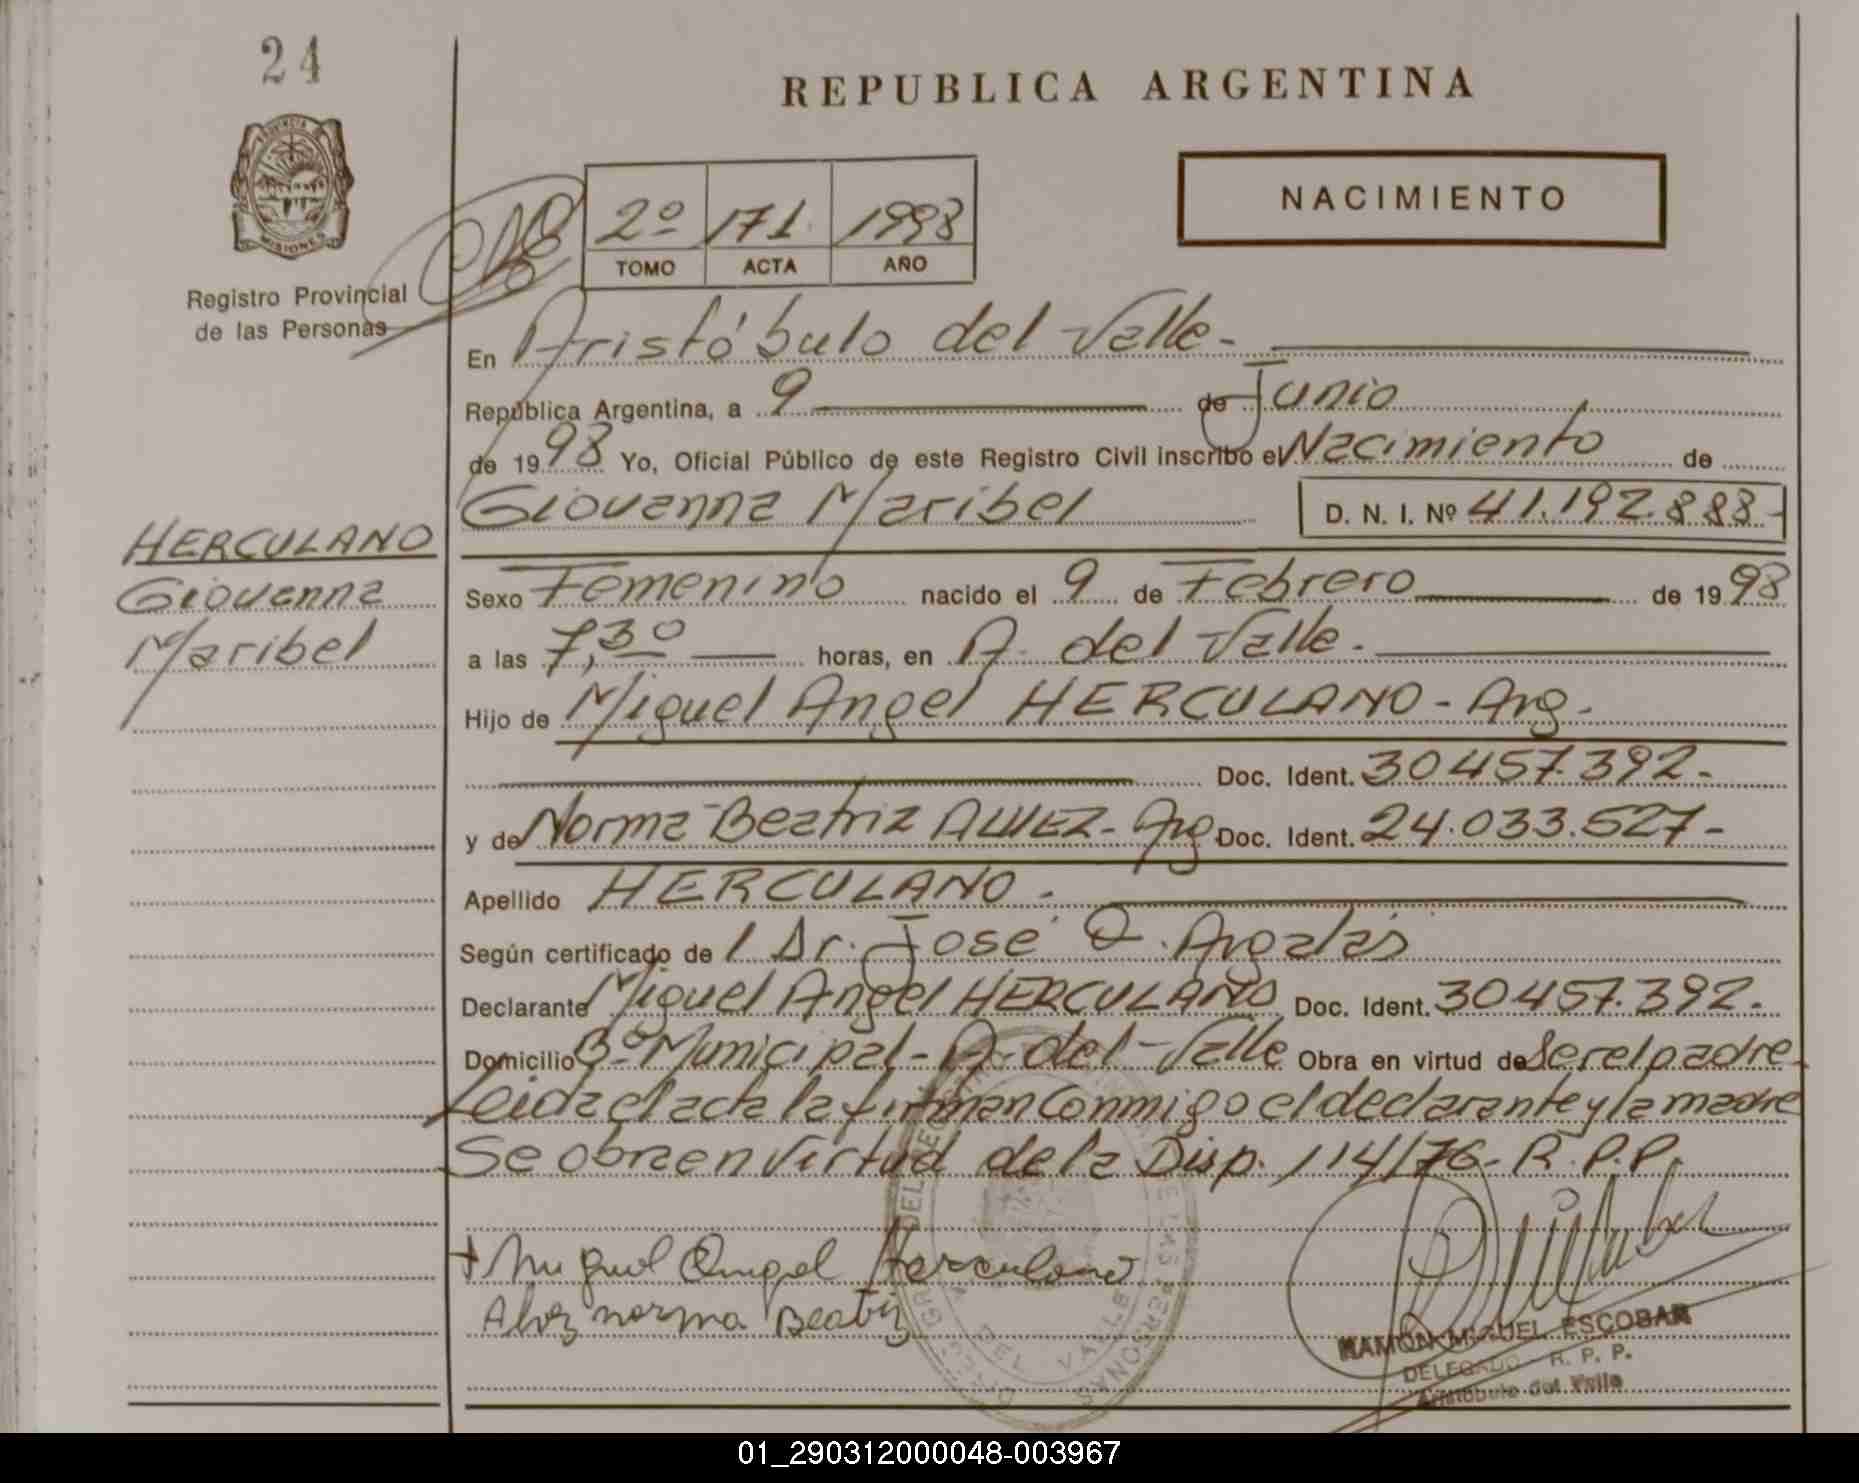 24
REPUBLICA ARGENTINA
PROVINCIA DE
MISIONES
Registro Provincial
de las Personas
2º 171 1998
TOMO ACTA AÑO
NACIMIENTO
En Aristóbulo del Valle.-
República Argentina, a 9 de Junio
de 1998 Yo, Oficial Público de este Registro Civil inscribo el Nacimiento de
Giovanna Maribel D. N. I. Nº 41.192.888-
HERCULANO
Giovanna
Maribel
Sexo Femenino nacido el 9 de Febrero de 1998
a las 7,30 horas, en A. del Valle.-
Hijo de Miguel Angel HERCULANO - Arg.
Doc. Ident. 30457.392-
y de Norma Beatriz ALVEZ- Arg Doc. Ident. 24.033.527-
Apellido HERCULANO.
Según certificado de l Dr. José O. Argalas
Declarante Miguel Angel HERCULANO Doc. Ident. 30457.392.
Domicilio Bº Municipal - A. del Valle Obra en virtud de Ser el padre-
Leida el acta la firman conmigo el declarante y la madre
Se obra en virtud de la Disp. 114/76- R.P.P.
Miguel Angel Herculano
Alvez norma Beatriz
RAMON MIGUEL ESCOBAR
DELEGADO - R. P. P.
Aristóbulo del Valle
DEL VALLE
01_290312000048-003967